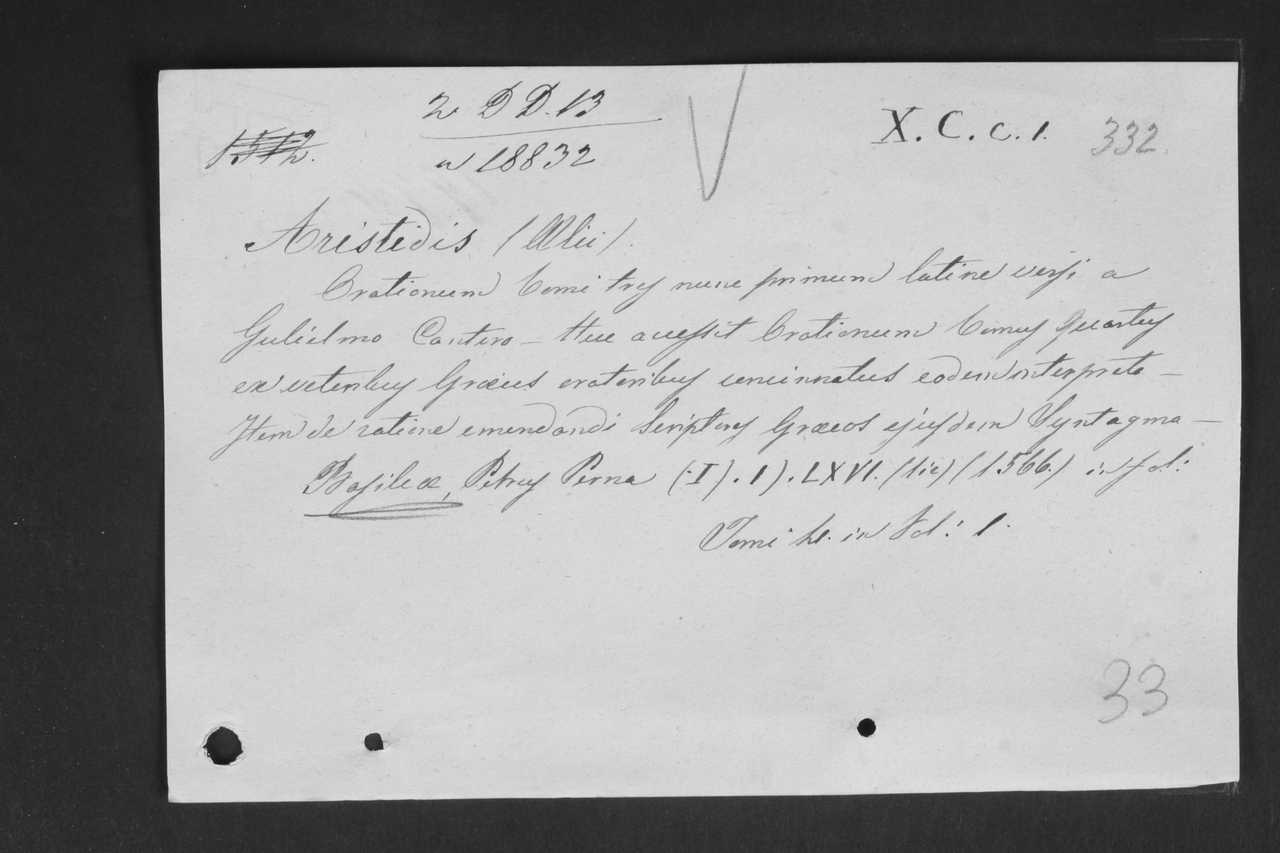 2 D D. 13
X. C. c. 1. 332.
1512.
a 18832
Aristidis (Ælii).
Orationum tomi tres nunc primum latine versi a
Gulielmo Cantero – Huc accessit Orationum tomus quartus
ex veteribus Græcis oratoribus concinnatus eodem interprete –
Item de ratione emendandi scriptores Græcos ejusdem Syntagma –
Basileæ, Petrus Perna (I).I).LXVI. (sic) (1566.) in fol:
Tomi in fol: 1.
33